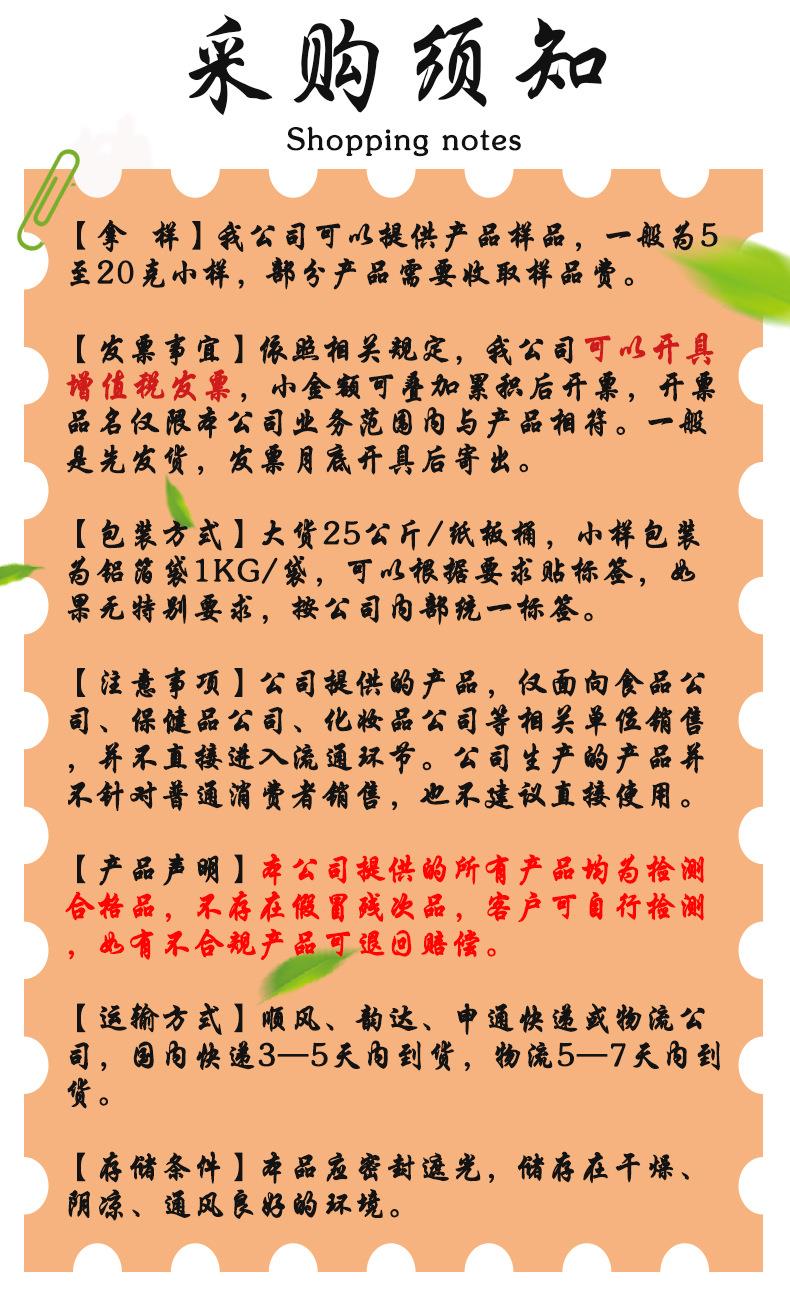 采购须知
Shopping notes
【拿 样】我公司可以提供产品样品，一般为5
至20克小样，部分产品需要收取样品费。
【发票事宜】依照相关规定，我公司可以开具
增值税发票，小金额可叠加累积后开票，开票
品名仅限本公司业务范围内与产品相符。一般
是先发货，发票月底开具后寄出。
【包装方式】大货25公斤/纸板桶，小样包装
为铝箔袋1KG/袋，可以根据要求贴标签，如
果无特别要求，按公司内部统一标签。
【注意事项】公司提供的产品，仅面向食品公
司、保健品公司、化妆品公司等相关单位销售
，并不直接进入流通环节。公司生产的产品并
不针对普通消费者销售，也不建议直接使用。
【产品声明】本公司提供的所有产品均为检测
合格品，不存在假冒残次品，客户可自行检测
，如有不合规产品可退回赔偿。
【运输方式】顺风、韵达、申通快递或物流公
司，国内快递3—5天内到货，物流5—7天内到
货。
【存储条件】本品应密封遮光，储存在干燥、
阴凉、通风良好的环境。